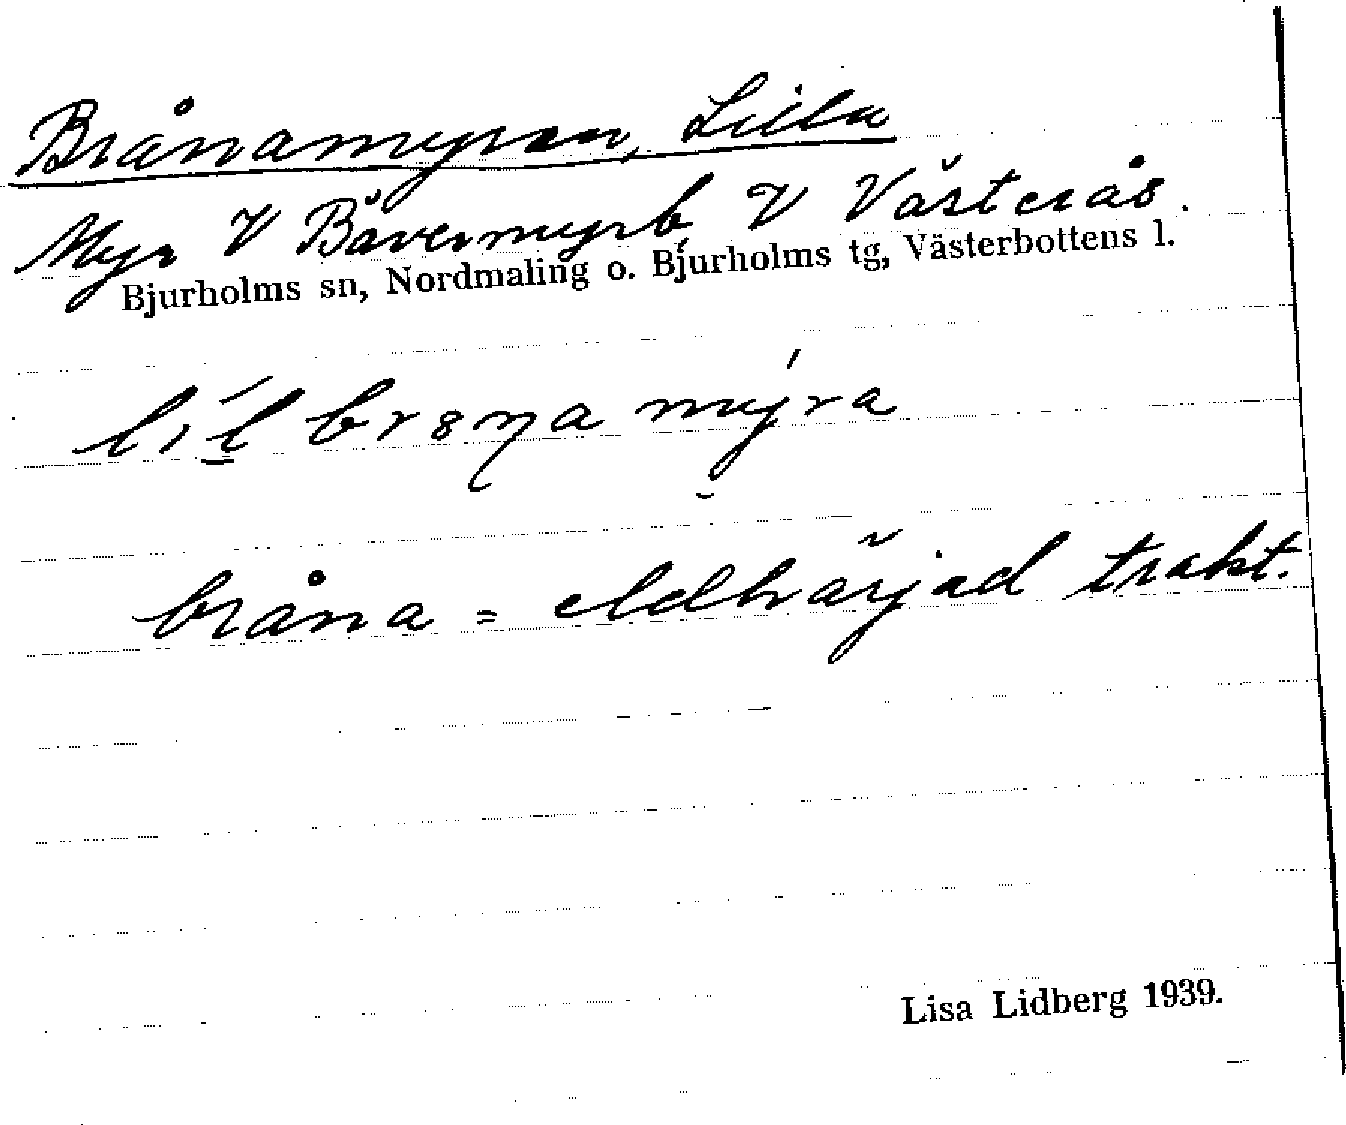 Brånamyran, Lilla
Myr V Bävermyrb, V Västerås.
Bjurholms sn, Nordmaling o. Bjurholms tg, Västerbottens l.
bråna = eldhärjad trakt.
Lisa Lidberg 1939.